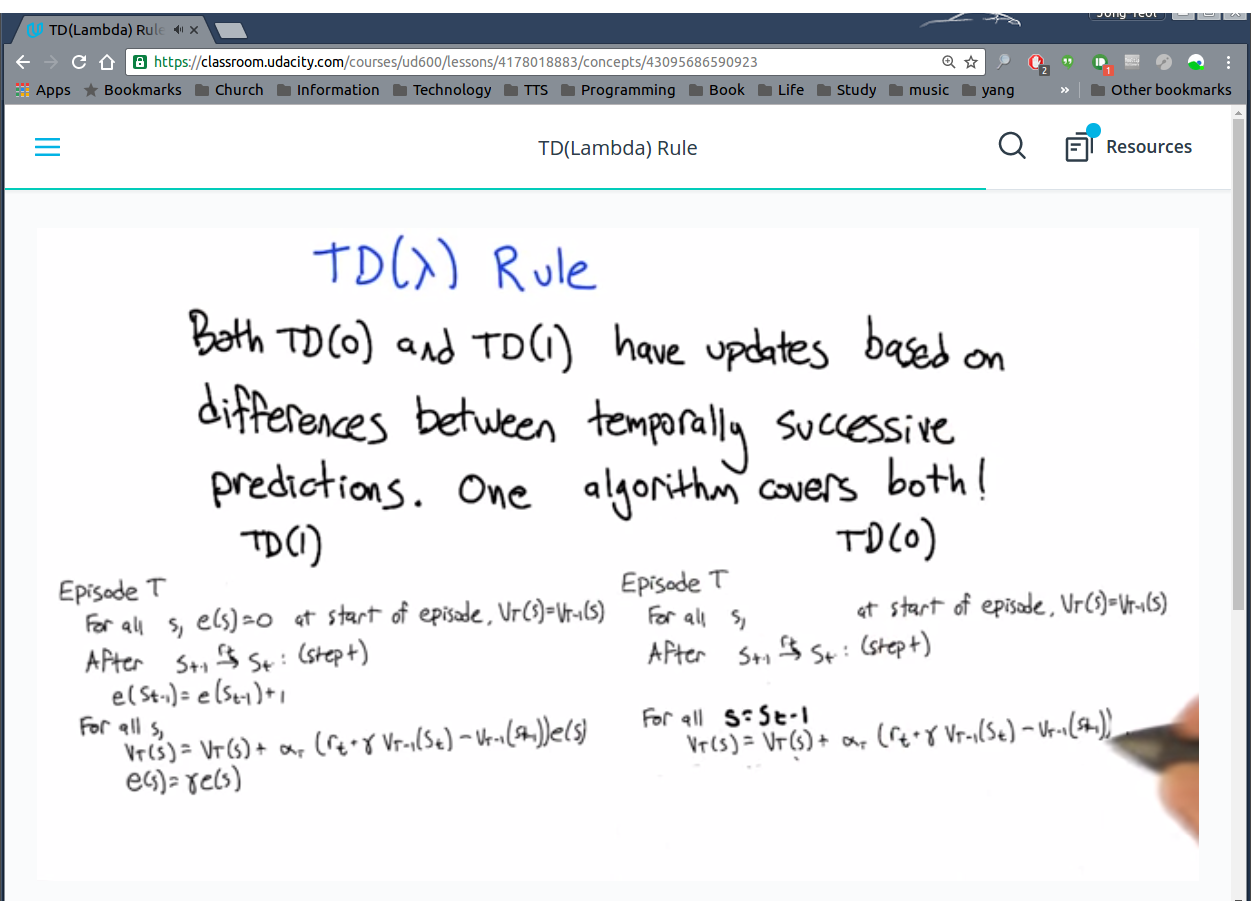 Jong Yeol
TD(Lambda) Rule
https://classroom.udacity.com/courses/ud600/lessons/4178018883/concepts/43095686590923
2
1
Apps Bookmarks Church Information Technology TTS Programming Book Life Study music yang » Other bookmarks
TD(Lambda) Rule
Resources
TD(λ) Rule
Both TD(0) and TD(1) have updates based on
differences between temporally successive
predictions. One algorithm covers both!
TD(1)
Episode T
For all s, e(s)=0 at start of episode, VT(s)=VT-1(s)
After St-1 →rt St: (step t)
e(St-1)= e(St-1)+1
For all s,
VT(s) = VT(s) + αT (rt + γ VT-1(St) - VT-1(St-1))e(s)
e(s)= γe(s)
TD(0)
Episode T
For all s, at start of episode, VT(s)=VT-1(s)
After St-1 →rt St: (step t)
For all S=St-1
VT(s) = VT(s) + αT (rt + γ VT-1(St) - VT-1(St-1))